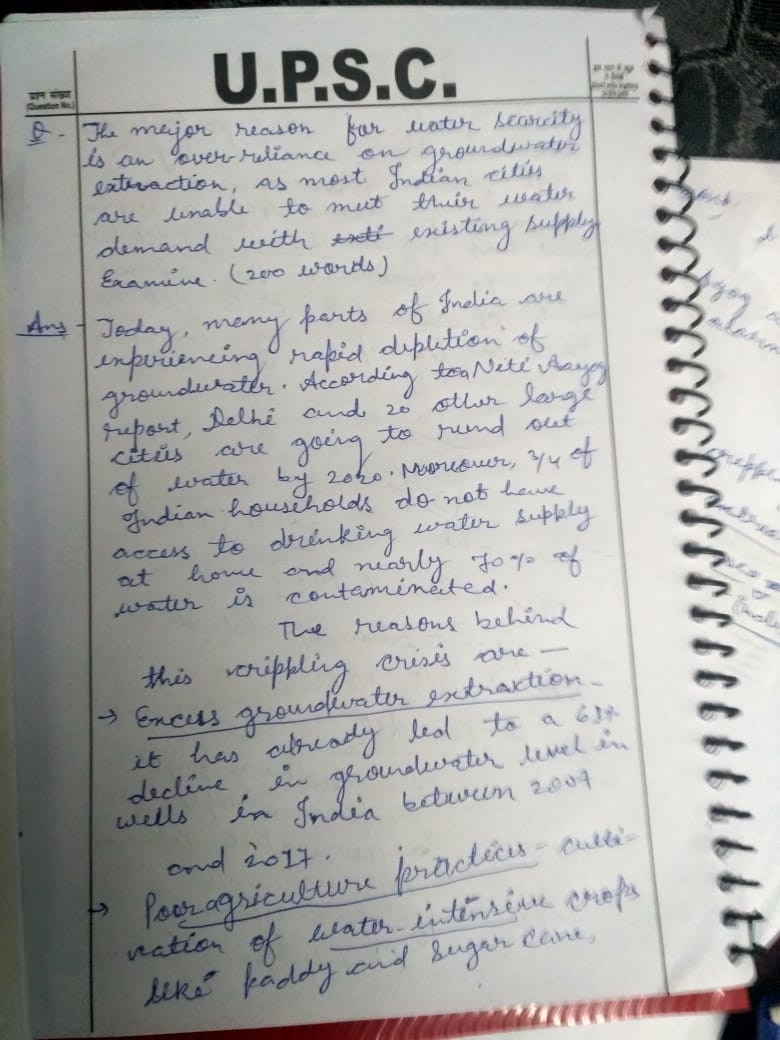 U.P.S.C.
प्रश्न संख्या
(Question No.)
Q - The major reason for water scarcity
is an over-reliance on groundwater
extraction, as most Indian cities
are unable to meet their water
demand with existing supply.
Examine. (200 words)
Ans - Today, many parts of India are
experiencing rapid depletion of
groundwater. According to a Niti Aayog
report, Delhi and 20 other large
cities are going to rund out
of water by 2020. Moreover, 3/4 of
Indian households do not have
access to drinking water supply
at home and nearly 70% of
water is contaminated.
The reasons behind
this crippling crisis are —
→ Excess groundwater extraction -
it has already led to a 61%
decline in groundwater level in
wells in India between 2007
and 2017.
→ Poor agriculture practices - culti-
vation of water-intensive crops
like paddy and sugar cane,